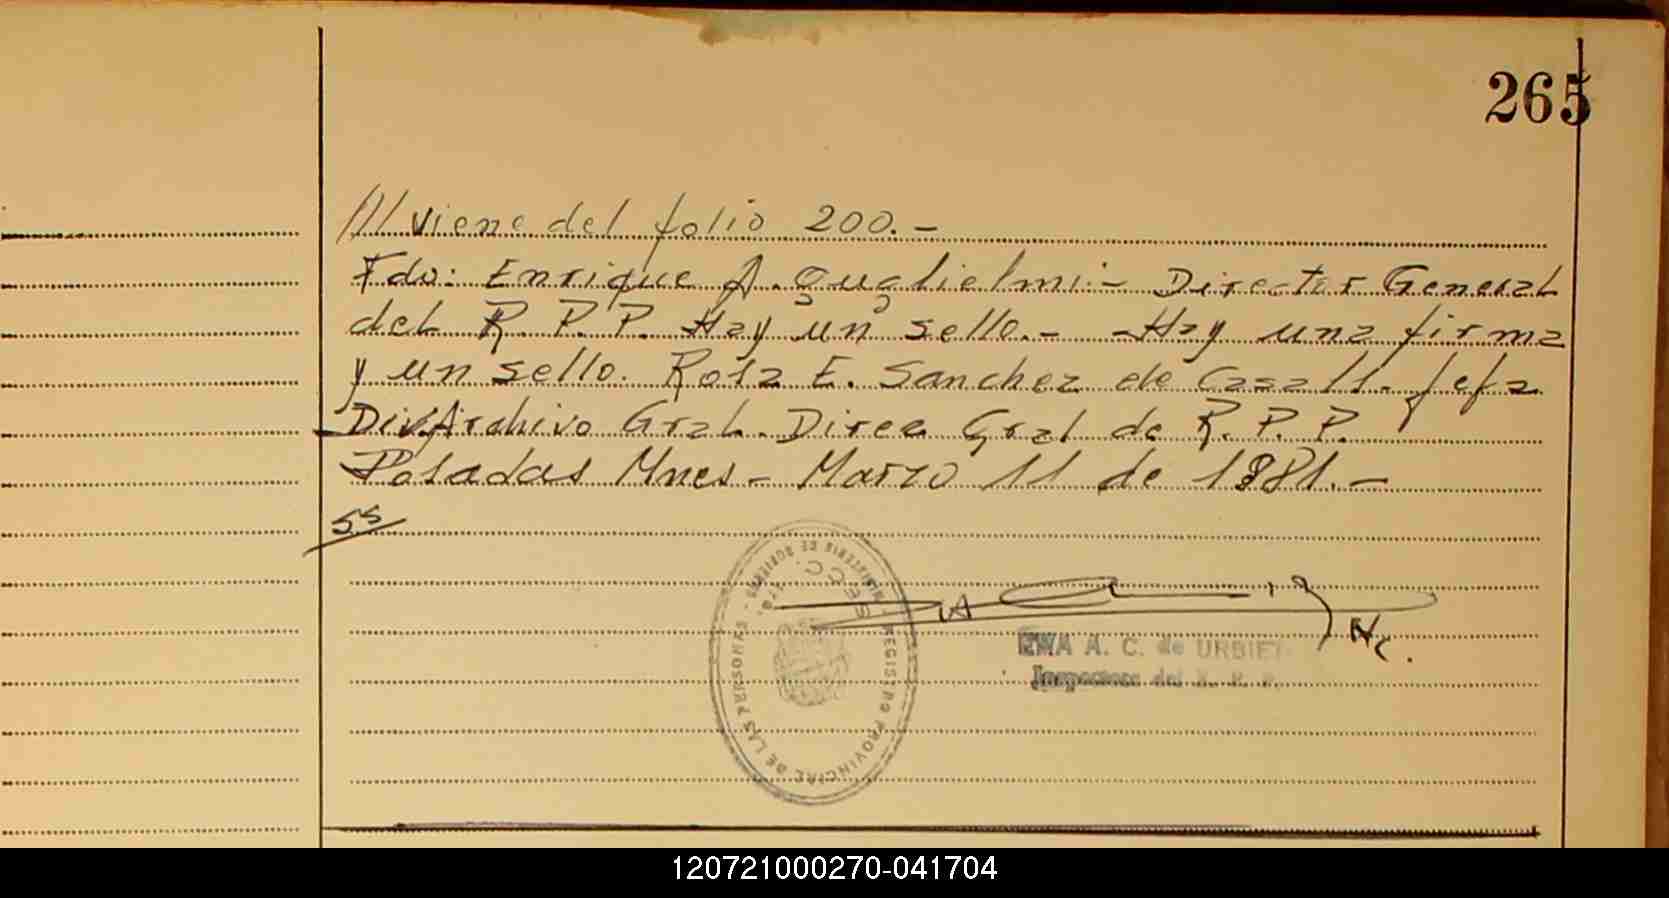 265
/// viene del folio 200.-
Fdo: Enrique A. Guglielmi.- Director General
del R. P. P. Hay un sello.- -Hay una firma
y un sello. Rosa E. Sanchez de Casalt. Jefa
Div. Archivo Gral. Direc Gral de R. P. P.
Posadas Mnes - Marzo 11 de 1981.-
ss
REGISTRO PROVINCIAL DE LAS PERSONAS
MINISTERIO DE GOBIERNO
SECC.
A. C. de URBIET
Inspectora del R. P. P.
120721000270-041704